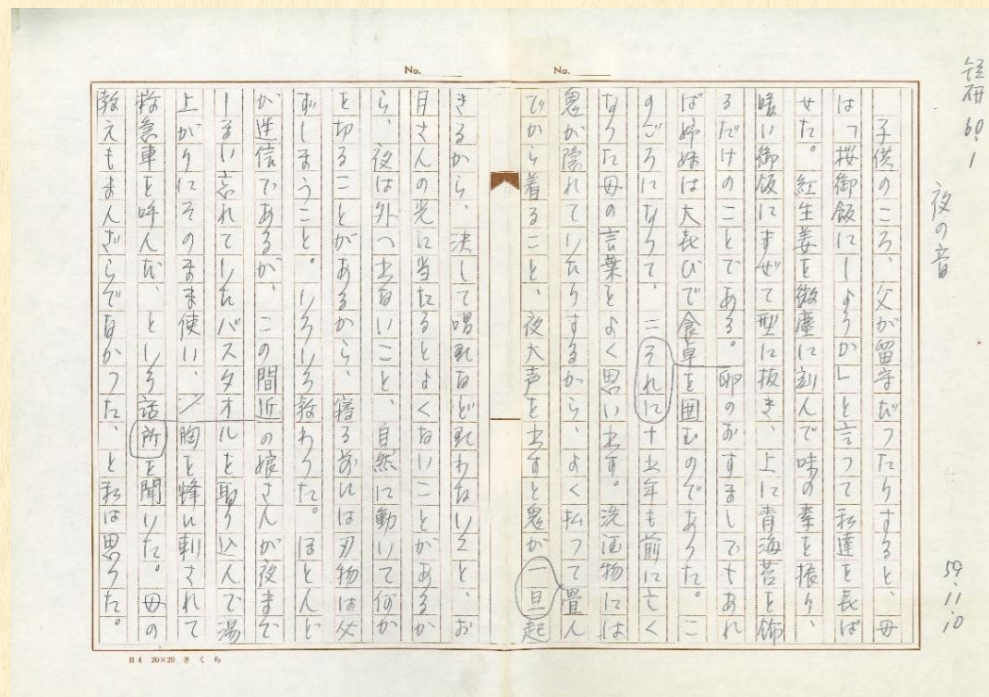 短研 60.1
夜の音
59.11.10
No.
No.
子供のころ、父が留守だったりすると、母
は「桜御飯にしようか」と言って私達を喜ば
せた。紅生姜を微塵に刻んで味の素を振り、
暖い御飯にまぜて型に抜き、上に青海苔を飾
るだけのことである。卵のおすましでもあれ
ば姉妹は大喜びで食卓を囲むのであった。こ
のごろになって、二それに十五年も前に亡く
なった母の言葉をよく思い出す。洗濯物には
鬼が隠れていたりするから、よく払って畳ん
でから着ること、夜大声を出すと鬼が一旦起
きるから、決して唄など歌わないこと、お
月さんの光に当たるとよくないことがあるか
ら、夜は外へ出ないこと、自然に動いて何か
を切ることがあるから、寝る前には刃物は必
ずしまうこと。いろいろ教わった。ほとんど
が迷信であるが、この間近の娘さんが夜まで
しまい忘れていたバスタオルを取り込んで湯
上がりにそのまま使い、胸を蜂に刺されて
救急車を呼んだ、という話所を聞いた。母の
教えもまんざらでなかった、と私は思った。
B4 20×20 さくら